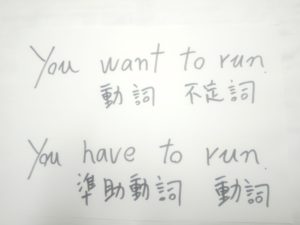 You want to run.
動詞 不定詞
You have to run.
準助動詞 動詞